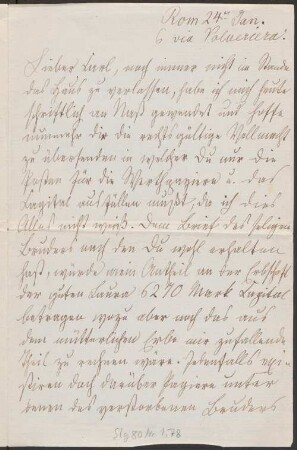 Rom 24ten Jan.
6 via Polveriera.
Lieber Carl, noch immer nicht im Stande
das Haus zu verlassen, habe ich mich heute
schriftlich an Nast gewendet und hoffe
nunmehr dir die rechtsgültige Vollmacht
zu übersenden in welcher Du nur die
Posten für die Werthpapiere u. das
Capital ausfüllen mußt, da ich dies
Alles nicht weiß. Dem Brief des seligen
Bruders nach den Du wohl erhalten
hast, würde mein Antheil an der Erbschaft
der guten Laura 6270 Mark Capital
betragen wozu aber noch das aus
dem mütterlichen Erbe mir zufallende
Theil zu rechnen wäre. Jedenfalls exi-
stiren doch darüber Papiere unter
denen des verstorbenen Bruders